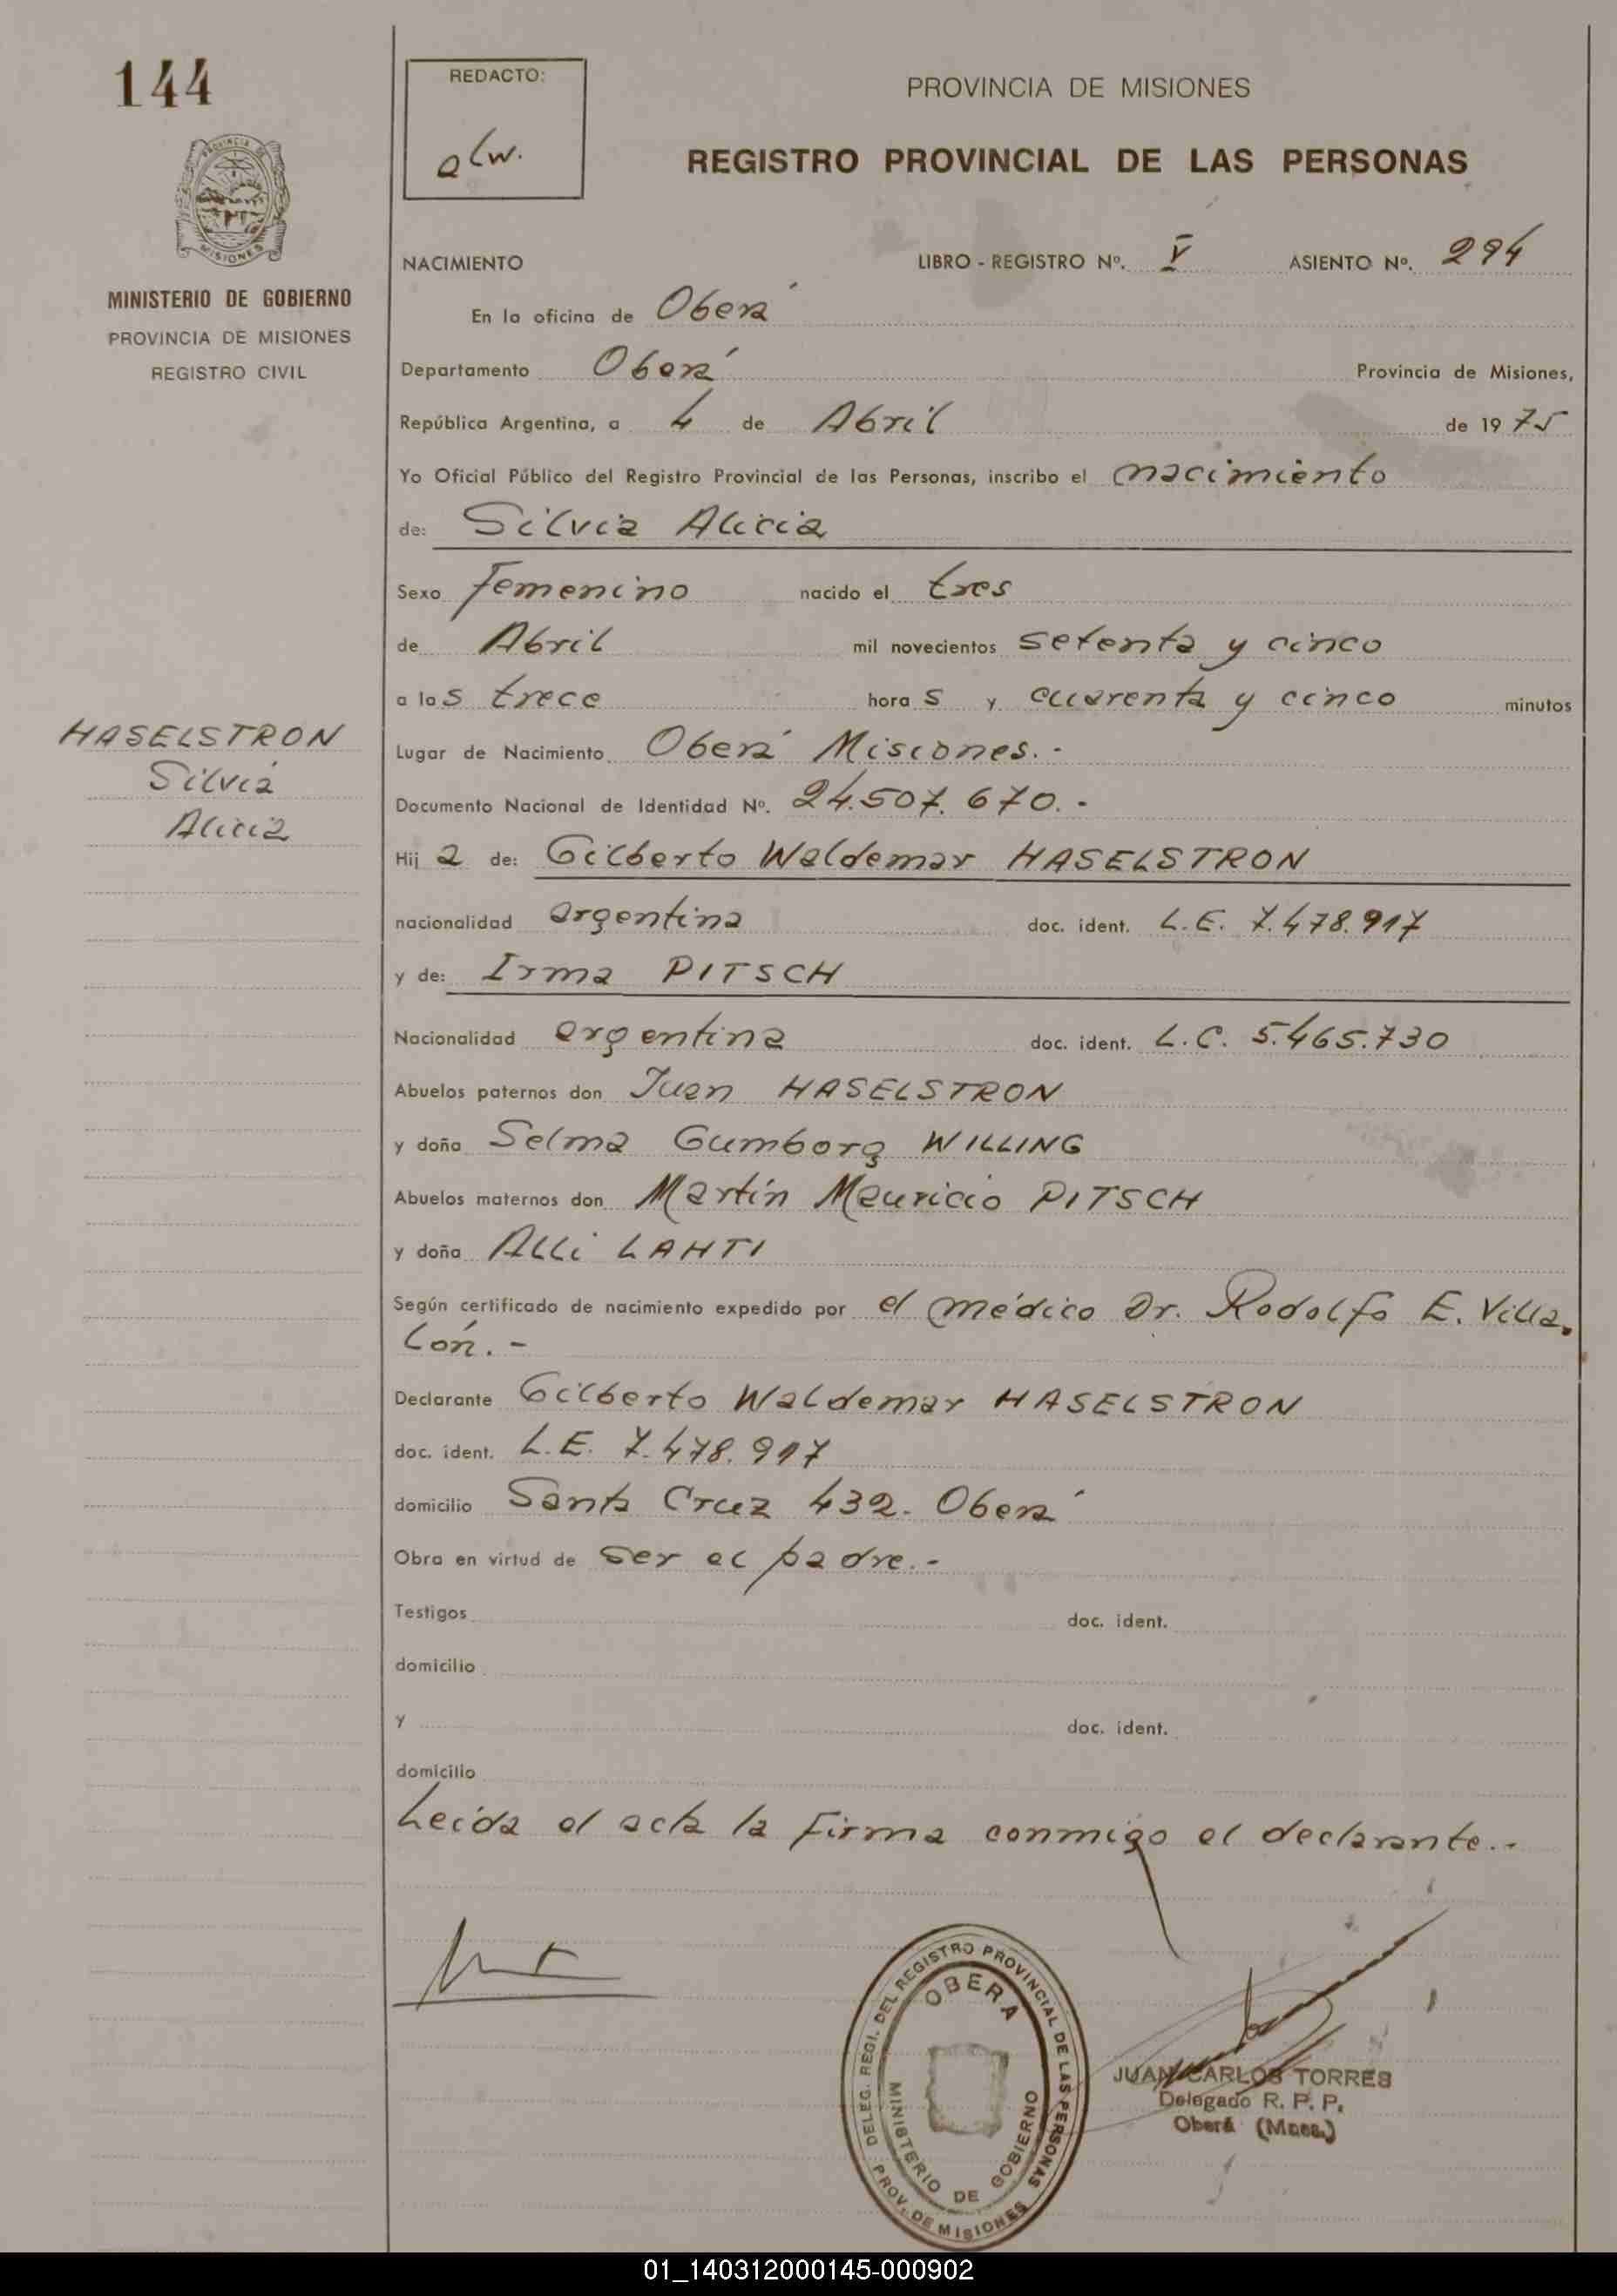 144
REDACTO:
alw.
PROVINCIA DE MISIONES
REGISTRO PROVINCIAL DE LAS PERSONAS
PROVINCIA DE
MISIONES
MINISTERIO DE GOBIERNO
PROVINCIA DE MISIONES
REGISTRO CIVIL
NACIMIENTO LIBRO - REGISTRO Nº. V ASIENTO Nº. 294
En la oficina de Oberá
Departamento Oberá Provincia de Misiones,
República Argentina, a 4 de Abril de 1975
Yo Oficial Público del Registro Provincial de las Personas, inscribo el nacimiento
de: Silvia Alicia
Sexo Femenino nacido el tres
de Abril mil novecientos setenta y cinco
a las trece horas y cuarenta y cinco minutos
HASELSTRON
Silvia
Alicia
Lugar de Nacimiento Oberá Misiones.-
Documento Nacional de Identidad Nº. 24.507.670.-
Hija de: Gilberto Waldemar HASELSTRON
nacionalidad argentina doc. ident. L.E. 7.478.917
y de: Irma PITSCH
Nacionalidad argentina doc. ident. L.C. 5.465.730
Abuelos paternos don Juan HASELSTRON
y doña Selma Gumborg WILLING
Abuelos maternos don Martín Mauricio PITSCH
y doña Alli LAHTI
Según certificado de nacimiento expedido por el médico Dr. Rodolfo E. Villa-
lón.-
Declarante Gilberto Waldemar HASELSTRON
doc. ident. L.E. 7.478.917
domicilio Santa Cruz 432. Oberá
Obra en virtud de ser el padre.-
Testigos doc. ident.
domicilio
y doc. ident.
domicilio
Leída el acta la firma conmigo el declarante.-
DELEG. REGI. DEL REGISTRO PROVINCIAL DE LAS PERSONAS
OBERA
MINISTERIO DE GOBIERNO
PROV. DE MISIONES
JUAN CARLOS TORRES
Delegado R. P. P.
Oberá (Mnes.)
01_140312000145-000902